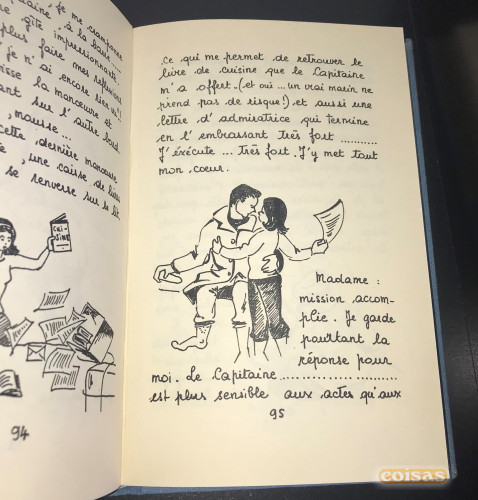 , je me cramponne
taine à la barre
gîte impressionnante
plus faire mes réflexions
je n'ai encore rien vu !
isse la manœuvre et
ant sur l'autre bord
, mousse...
cette dernière manœuvre
, une caisse de livres
se renverse sur le lit.
CUI-
SINE
94
ce qui me permet de retrouver le
livre de cuisine que le Capitaine
m'a offert.(et oui ... un vrai marin ne
prend pas de risque!) et aussi une
lettre d'admiratrice qui termine
en l'embrassant très fort ............
J'éxécute ... très fort. J'y met tout
mon cœur.
Madame :
mission accom-
plie. Je garde
pourtant la
réponse pour
moi. Le Capitaine ........................
est plus sensible aux actes qu'aux
95
coisas